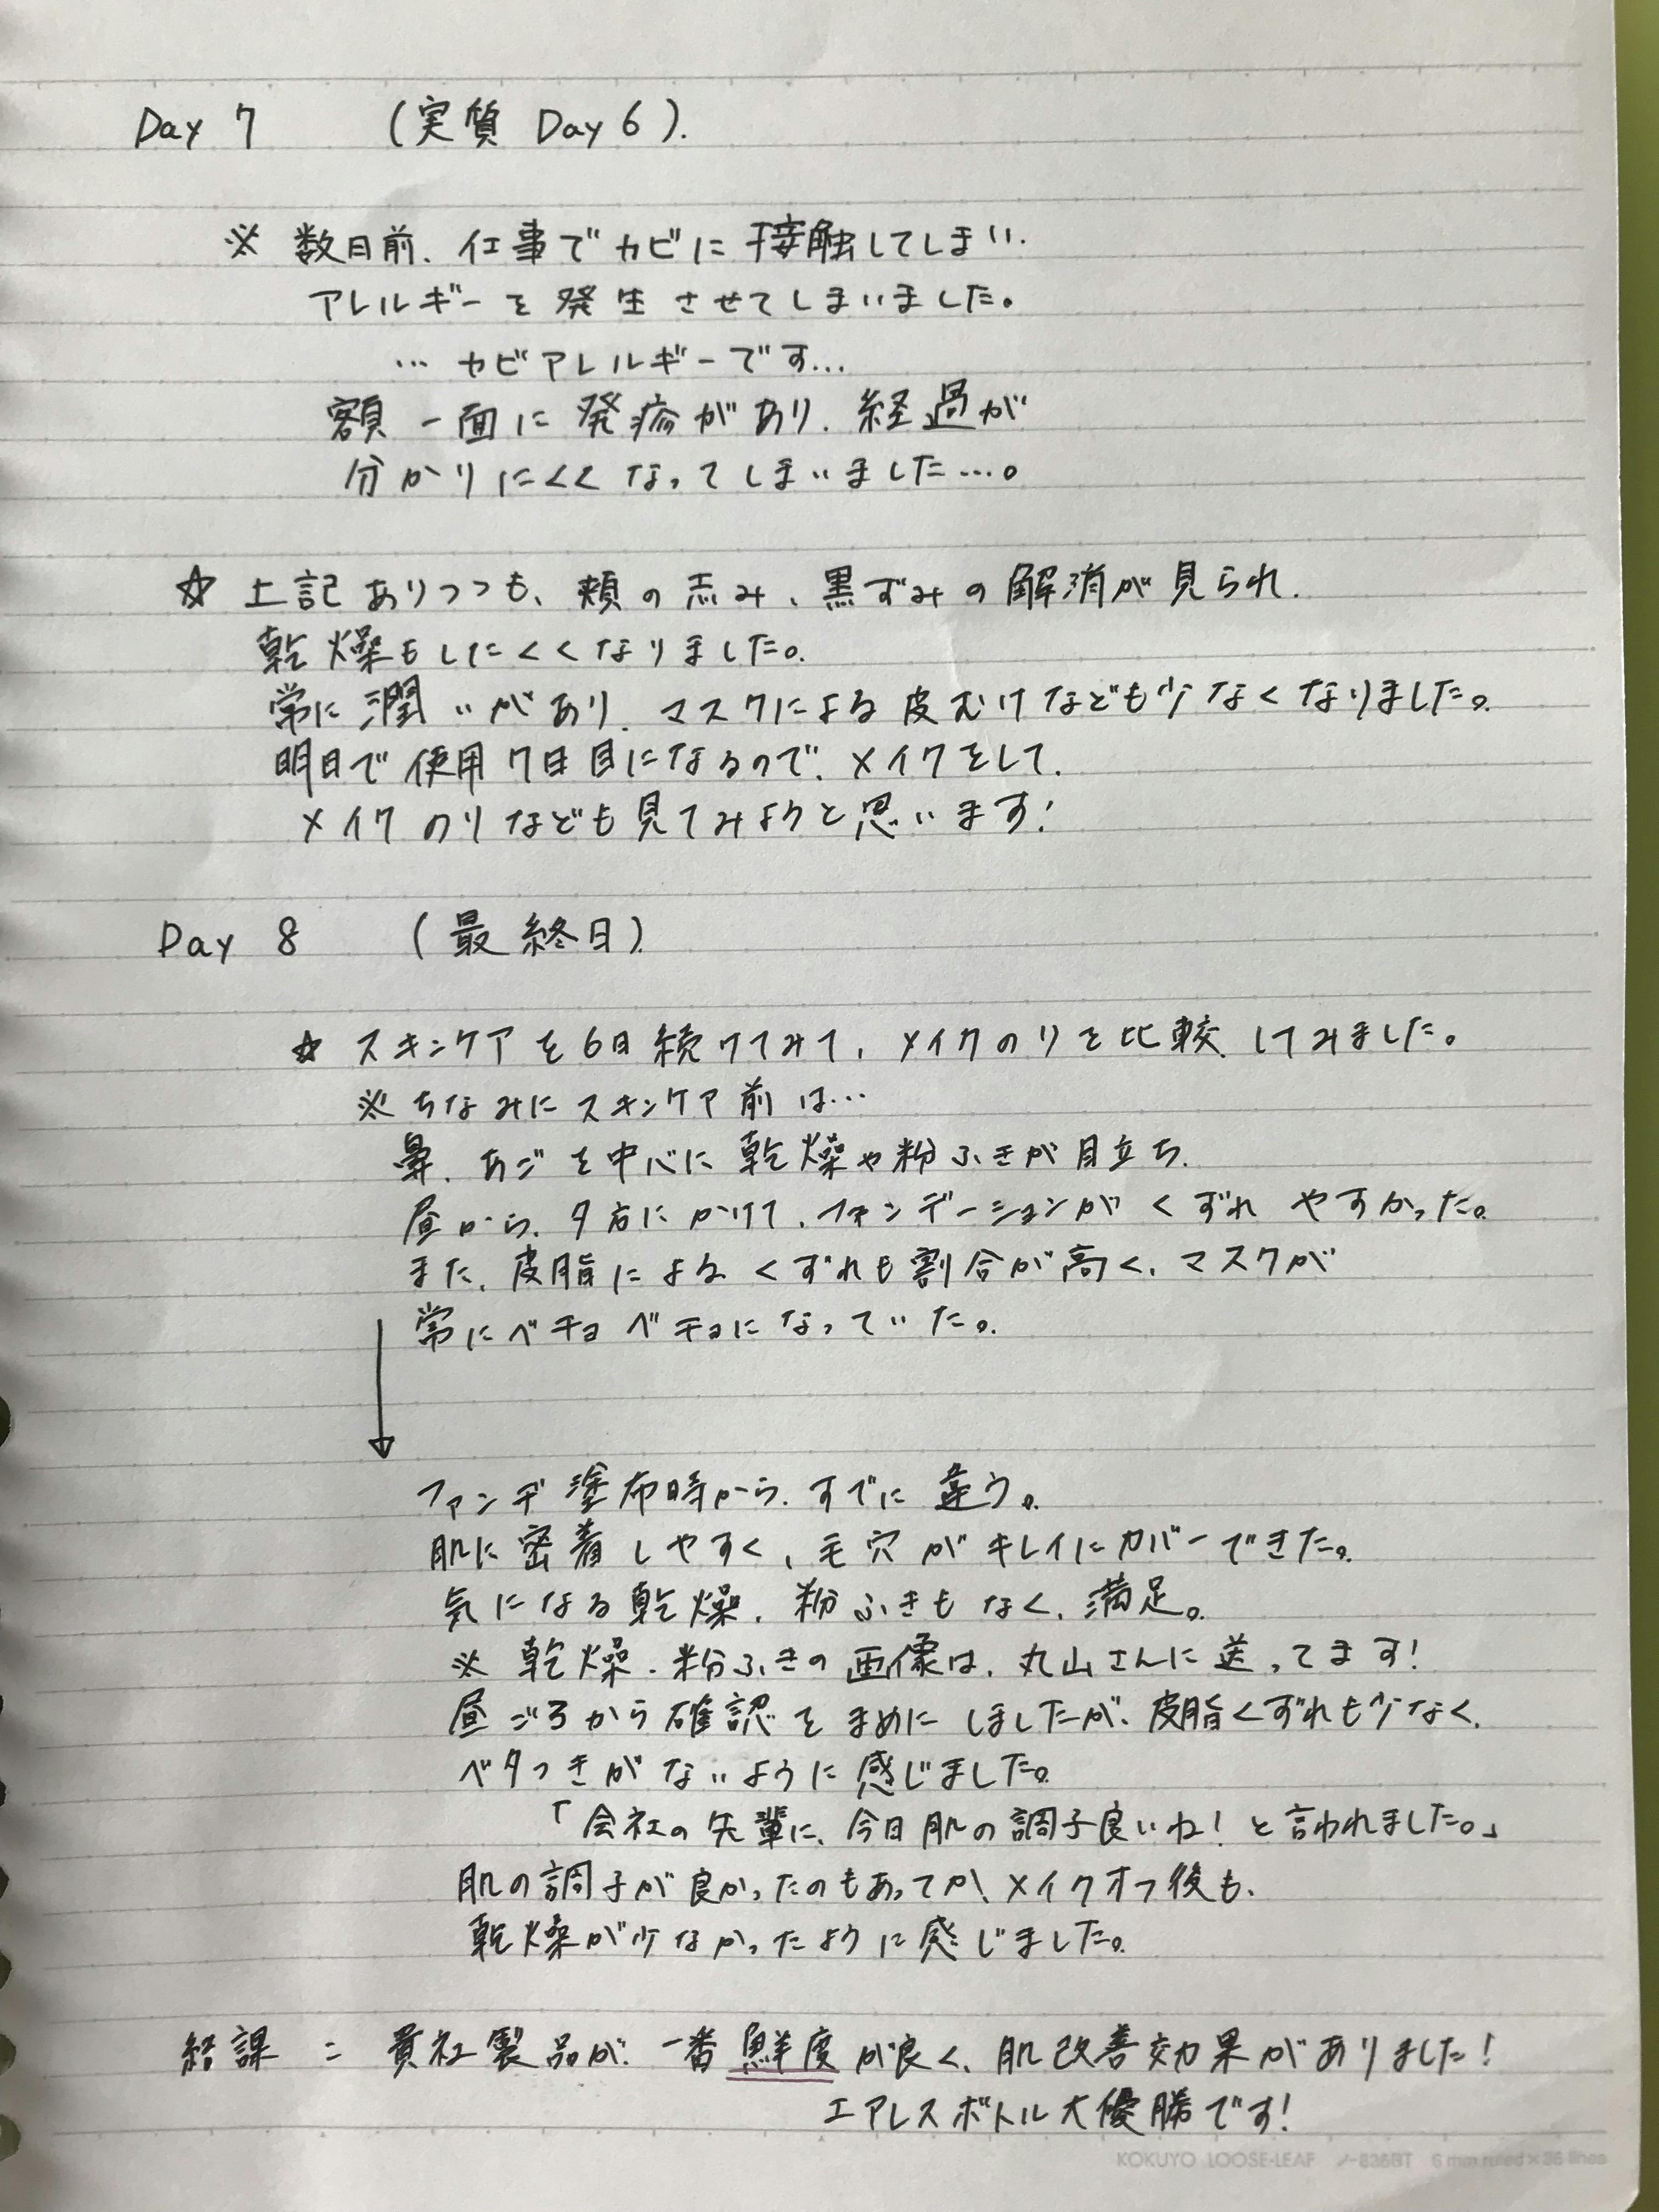 Day 7 (実質 Day 6).
※ 数日前、仕事でカビに接触してしまい、
アレルギーを発生させてしまいました。
… カビアレルギーです…
額一面に発疹があり、経過が
分かりにくくなってしまいました…。
☆ 上記ありつつも、頬の赤み、黒ずみの解消が見られ、
乾燥もしにくくなりました。
常に潤いがあり、マスクによる皮むけなども少なくなりました。
明日で使用7日目になるので、メイクをして、
メイクのりなども見てみようと思います!
Day 8 (最終日).
☆ スキンケアを6日続けてみて、メイクのりを比較してみました。
※ ちなみにスキンケア前は…
鼻、あごを中心に乾燥や粉ふきが目立ち、
昼から、夕方にかけて、ファンデーションがくずれやすかった。
また、皮脂によるくずれも割合が高く、マスクが
常にベチョベチョになっていた。
↓
ファンデ塗布時から、すでに違う。
肌に密着しやすく、毛穴がキレイにカバーできた。
気になる乾燥、粉ふきもなく、満足。
※ 乾燥、粉ふきの画像は、丸山さんに送ってます!
昼ごろから確認をまめにしましたが、皮脂くずれも少なく、
ベタつきがないように感じました。
「会社の先輩に、今日肌の調子良いね!と言われました。」
肌の調子が良かったのもあってか、メイクオフ後も、
乾燥が少なかったように感じました。
結課 = 貴社製品が、一番鮮度が良く、肌改善効果がありました!
エアレスボトル大優勝です!
KOKUYO LOOSE-LEAF ノ-836BT 6 mm ruled×36 lines